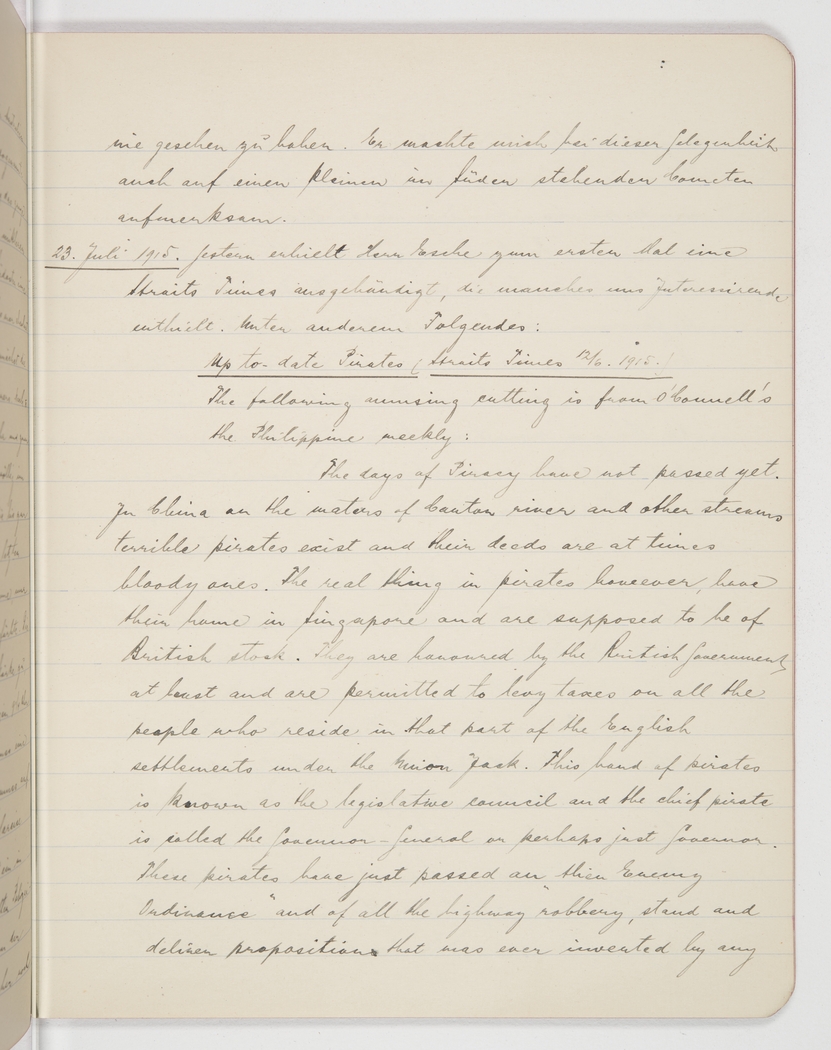 nie gesehen zu haben. Er machte mich bei dieser Gelegenheit
auch auf einen kleinen im Süden stehenden Cometen
aufmerksam.
23. Juli 1915. Gestern erhielt Herr Esche zum ersten Mal eine
Straits Times ausgehändigt, die manches uns Interessirende
enthielt. Unter anderem Folgendes:
Up to-date Pirates (Straits Times 12/6. 1915.)
The following amusing cutting is from O'Connell's
the Philippine weekly:
The days of Piracy have not passed yet.
In China on the waters of Canton river and other streams
terrible pirates exist and their deeds are at times
bloody ones. The real thing in pirates however, have
their home in Singapore and are supposed to be of
British stock. They are honoured by the British Government,
at least and are permitted to levy taxes on all the
people who reside in that part of the English
settlements under the Union Jack. This band of pirates
is known as the legislative council and the chief pirate
is called the Governor-General or perhaps just Governor.
These pirates have just passed an Alien Enemy
Ordinance" and of all the highway robbery, stand and
deliver propositions that was ever invented by any